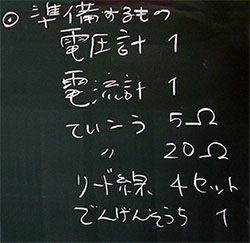 ⊙ 準備するもの
電圧計 1
電流計 1
ていこう 5Ω
〃 20Ω
リード線 4セット
でんげんそうち 1